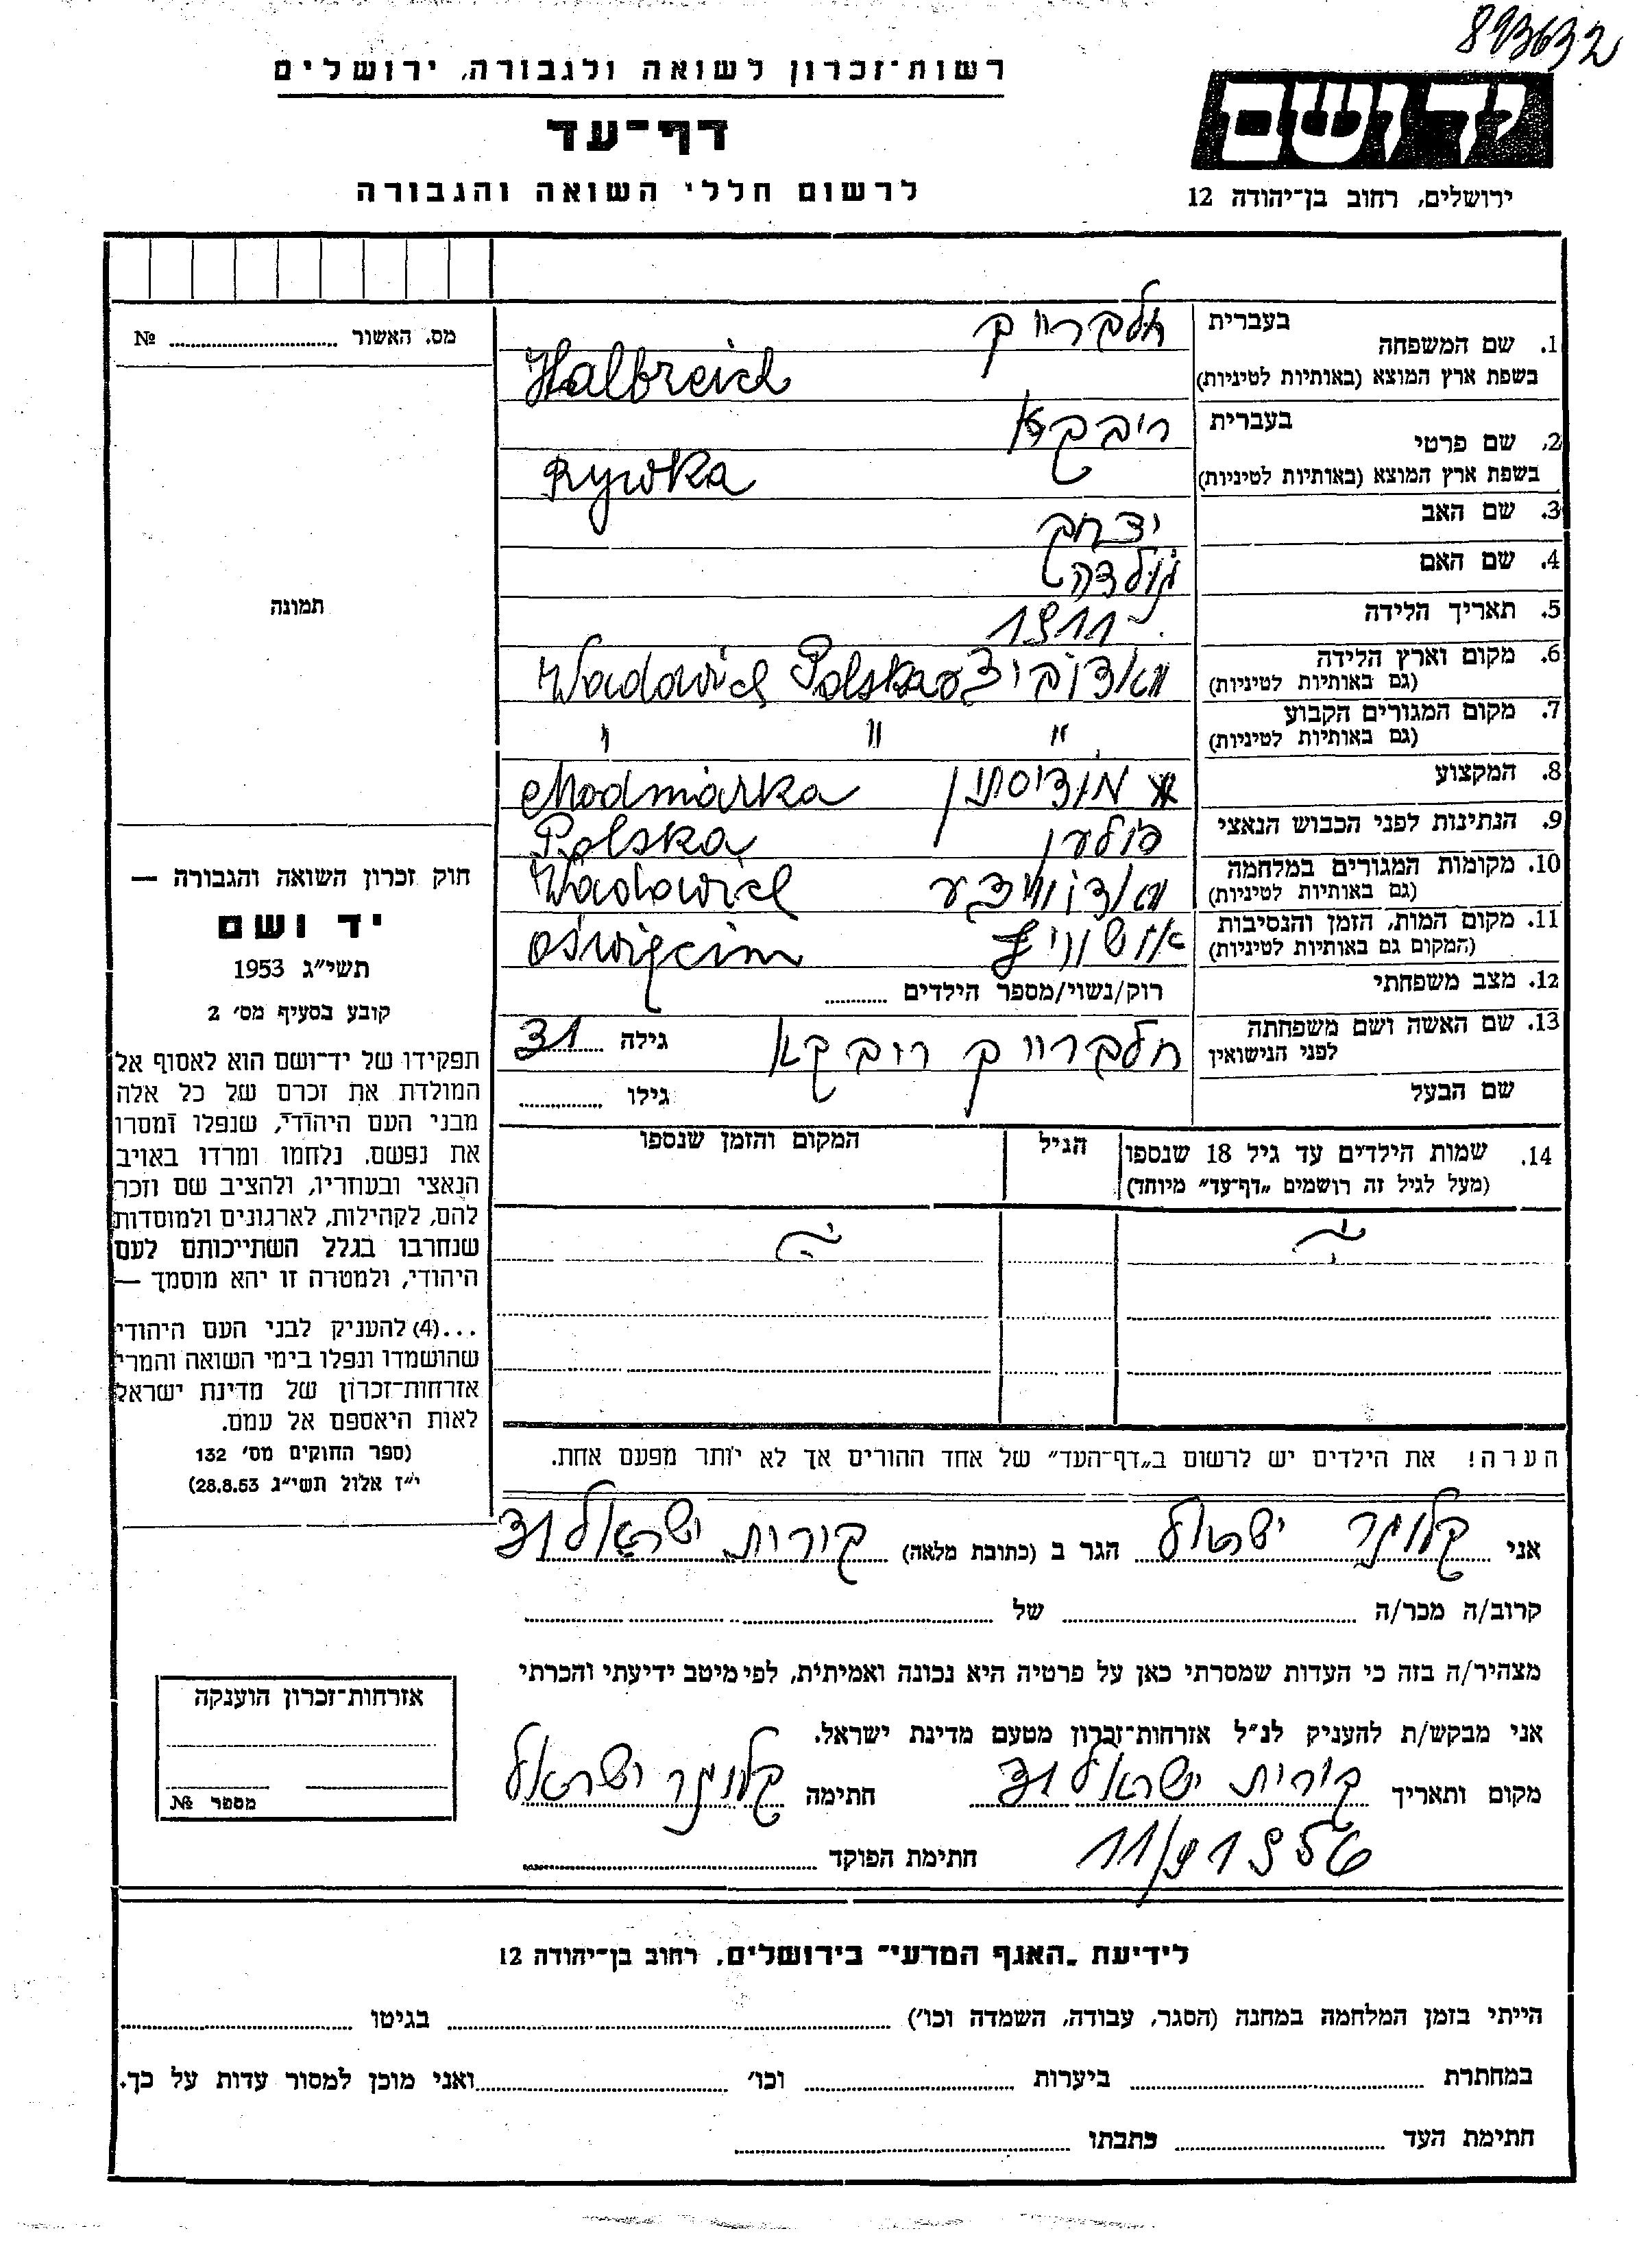 893632
רשות־זכרון לשואה ולגבורה, ירושלים
דף־עד
לרשום חללי השואה והגבורה
יד ושם
ירושלים, רחוב בן־יהודה 12
מס. האשור № ..........
תמונה
1. שם המשפחה
בעברית חלברייך
בשפת ארץ המוצא (באותיות לטיניות) Halbreich
2. שם פרטי
בעברית ריבקא
בשפת ארץ המוצא (באותיות לטיניות) Rywka
3. שם האב יצחק
4. שם האם גולדה
5. תאריך הלידה 1911
6. מקום וארץ הלידה וואדוביצע Wadowice Polska
(גם באותיות לטיניות)
7. מקום המגורים הקבוע " " "
(גם באותיות לטיניות)
8. המקצוע מודיסתין Modniarka
9. הנתינות לפני הכבוש הנאצי פולען Polska
10. מקומות המגורים במלחמה וואדוויצע Wadowice
(גם באותיות לטיניות)
11. מקום המות, הזמן והנסיבות אושוויץ Oświęcim
(המקום גם באותיות לטיניות)
12. מצב משפחתי רוק/נשוי/מספר הילדים ..........
13. שם האשה ושם משפחתה חלברייך ריבקא גילה 31
לפני הנישואין
שם הבעל גילו ..........
14. שמות הילדים עד גיל 18 שנספו הגיל המקום והזמן שנספו
(מעל לגיל זה רושמים „דף־עד" מיוחד)
הערה! את הילדים יש לרשום ב„דף־העד" של אחד ההורים אך לא יותר מפעם אחת.
חוק זכרון השואה והגבורה —
יד ושם
תשי״ג 1953
קובע בסעיף מס׳ 2
תפקידו של יד־ושם הוא לאסוף אל
המולדת את זכרם של כל אלה
מבני העם היהודי, שנפלו ומסרו
את נפשם, נלחמו ומרדו באויב
הנאצי ובעוזריו, ולהציב שם וזכר
להם, לקהילות, לארגונים ולמוסדות
שנחרבו בגלל השתייכותם לעם
היהודי, ולמטרה זו יהא מוסמך —
...(4) להעניק לבני העם היהודי
שהושמדו ונפלו בימי השואה והמרי
אזרחות־זכרון של מדינת ישראל
לאות היאספם אל עמם.
(ספר החוקים מס׳ 132
י״ז אלול תשי״ג 28.8.53)
אני ישראל הגר ב (כתובת מלאה) קורות ישראל 31
קרוב/ה מכר/ה .......... של ..........
מצהיר/ה בזה כי העדות שמסרתי כאן על פרטיה היא נכונה ואמיתית, לפי מיטב ידיעתי והכרתי
אני מבקש/ת להעניק לנ״ל אזרחות־זכרון מטעם מדינת ישראל.
מקום ותאריך קורית ישראל 31 חתימה ישראל
11/9 1956 חתימת הפוקד ..........
אזרחות־זכרון הוענקה
מספר №
לידיעת „האגף המדעי" בירושלים, רחוב בן־יהודה 12
הייתי בזמן המלחמה במחנה (הסגר, עבודה, השמדה וכו׳) .......... בגיטו ..........
במחתרת .......... ביערות .......... וכו׳ .......... ואני מוכן למסור עדות על כך.
חתימת העד .......... כתבתו ..........